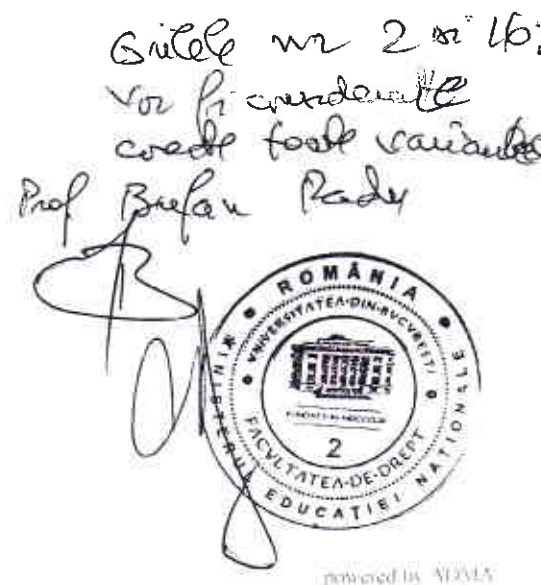 Grilele nr 2 si 16
vor fi considerate
corecte toate variantele
Prof Bufan Radu
ROMÂNIA
MINISTERUL EDUCAȚIEI NAȚIONALE
UNIVERSITATEA-DIN-BUCUREȘTI
FACULTATEA-DE-DREPT
2
powered by